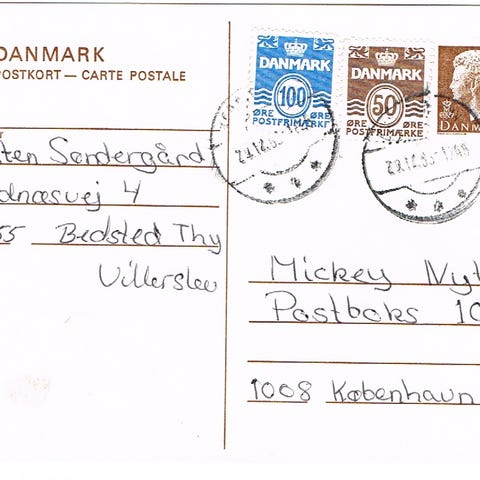 DANMARK
POSTKORT — CARTE POSTALE
ten Søndergård
dnæsvej 4
55 Bedsted Thy
Villerslev
DANMARK
100
ØRE ØRE
POSTFRIMÆRKE
DANMARK
50
ØRE ØRE
POSTFRIMÆRKE
DANM
Mickey Nyt
Postboks 10
1008 København